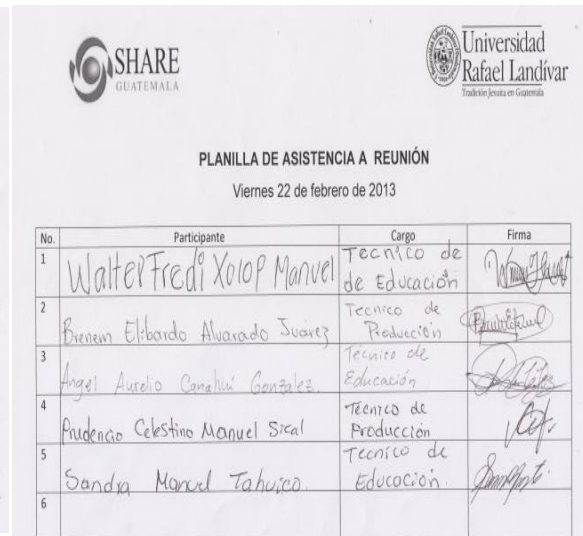 SHARE
GUATEMALA
Universidad
Rafael Landívar
Tradición Jesuita en Guatemala
PLANILLA DE ASISTENCIA A REUNIÓN
Viernes 22 de febrero de 2013
No. Participante Cargo Firma
1 Walter Fredi Xolop Manuel Tecnico de
de Educación
2 Brenem Elibardo Alvarado Juarez Tecnico de
Producción
3 Angel Aurelio Canahui Gonzalez. Técnico de
Educación
4 Prudencio Celestino Manuel Sical Técnico de
Producción
5 Sandra Manuel Tahuico. Tecnico de
Educación.
6